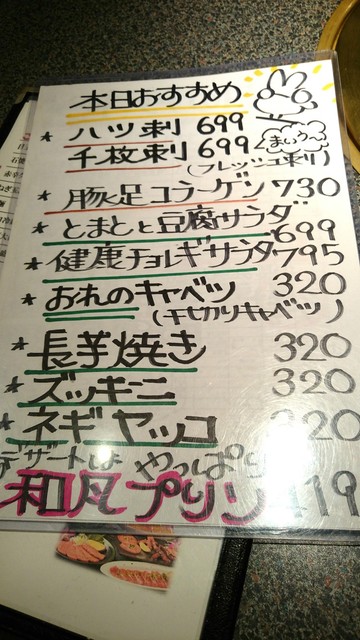 本日おすすめ
まいう〜
★ ハツ刺 699
千枚刺 699
(フレッツェ刺)
★ 豚足コラーゲン 730
★ とまとと豆腐サラダ 699
★ 健康チョレギサラダ 795
★ おれのキャベツ 320
(干切りキャベツ)
★ 長芋焼き 320
★ ズッキーニ 320
★ ネギヤッコ 320
デザートはやっぱり
和風プリン 119